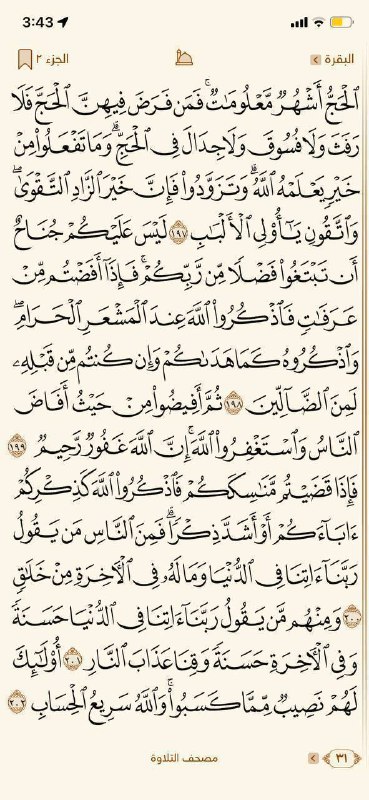 3:43
البقرة
الجزء ٢
ٱلْحَجُّ أَشْهُرٌ مَّعْلُومَـٰتٌ ۚ فَمَن فَرَضَ فِيهِنَّ ٱلْحَجَّ فَلَا
رَفَثَ وَلَا فُسُوقَ وَلَا جِدَالَ فِى ٱلْحَجِّ ۗ وَمَا تَفْعَلُوا۟ مِنْ
خَيْرٍ يَعْلَمْهُ ٱللَّهُ ۗ وَتَزَوَّدُوا۟ فَإِنَّ خَيْرَ ٱلزَّادِ ٱلتَّقْوَىٰ ۚ
وَٱتَّقُونِ يَـٰٓأُو۟لِى ٱلْأَلْبَـٰبِ ١٩٧ لَيْسَ عَلَيْكُمْ جُنَاحٌ
أَن تَبْتَغُوا۟ فَضْلًا مِّن رَّبِّكُمْ ۚ فَإِذَآ أَفَضْتُم مِّنْ
عَرَفَـٰتٍ فَٱذْكُرُوا۟ ٱللَّهَ عِندَ ٱلْمَشْعَرِ ٱلْحَرَامِ ۖ
وَٱذْكُرُوهُ كَمَا هَدَىٰكُمْ وَإِن كُنتُم مِّن قَبْلِهِۦ
لَمِنَ ٱلضَّآلِّينَ ١٩٨ ثُمَّ أَفِيضُوا۟ مِنْ حَيْثُ أَفَاضَ
ٱلنَّاسُ وَٱسْتَغْفِرُوا۟ ٱللَّهَ ۚ إِنَّ ٱللَّهَ غَفُورٌ رَّحِيمٌ ١٩٩
فَإِذَا قَضَيْتُم مَّنَـٰسِكَكُمْ فَٱذْكُرُوا۟ ٱللَّهَ كَذِكْرِكُمْ
ءَابَآءَكُمْ أَوْ أَشَدَّ ذِكْرًا ۗ فَمِنَ ٱلنَّاسِ مَن يَقُولُ
رَبَّنَآ ءَاتِنَا فِى ٱلدُّنْيَا وَمَا لَهُۥ فِى ٱلْـَٔاخِرَةِ مِنْ خَلَـٰقٍ
٢٠٠ وَمِنْهُم مَّن يَقُولُ رَبَّنَآ ءَاتِنَا فِى ٱلدُّنْيَا حَسَنَةً
وَفِى ٱلْـَٔاخِرَةِ حَسَنَةً وَقِنَا عَذَابَ ٱلنَّارِ ٢٠١ أُو۟لَـٰٓئِكَ
لَهُمْ نَصِيبٌ مِّمَّا كَسَبُوا۟ ۚ وَٱللَّهُ سَرِيعُ ٱلْحِسَابِ ٢٠٢
٣١
مصحف التلاوة